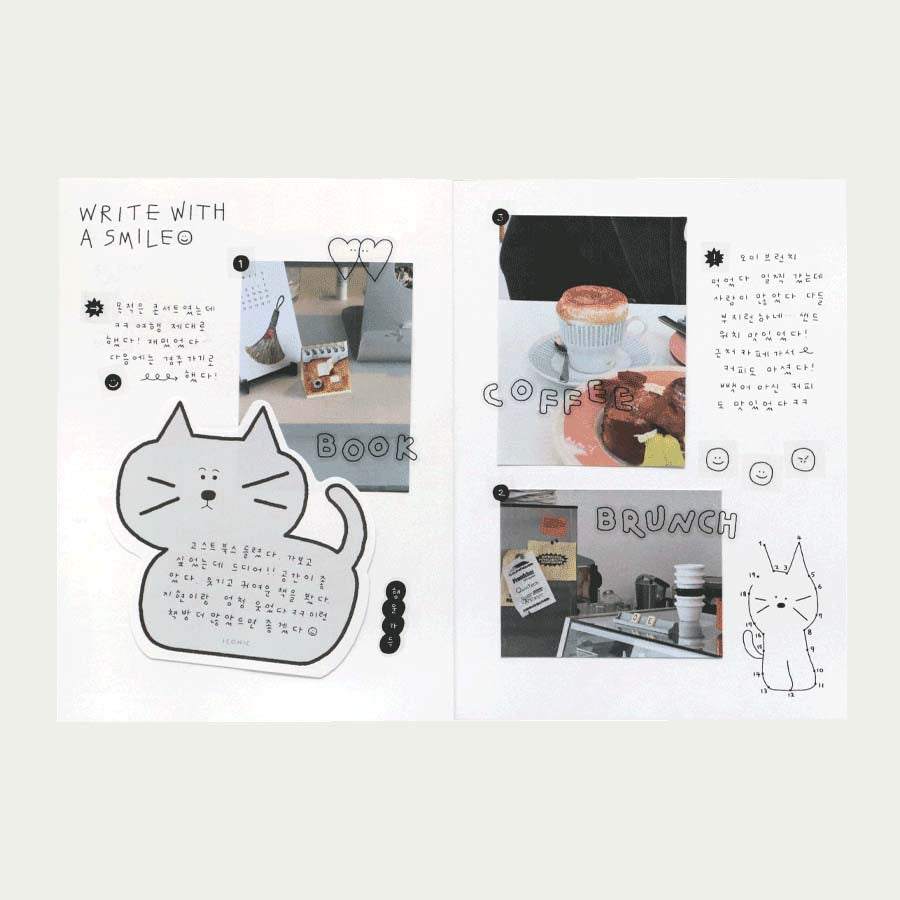 WRITE WITH
A SMILE
1
목적은 콘서트였는데
ㅋㅋ 여행 제대로
했다! 재밌었다
다음에는 경주가기로
했다!
BOOK
고스트북스 들렸다. 가보고
싶었는데 드디어!! 공간이 좁
았다. 웃기고 귀여운 책을 봤다.
지현이랑 엄청 웃었다ㅋㅋ 이런
책방 더 많았으면 좋겠다
ICONIC
행
운
가
득
3
COFFEE
!
오이브런치
먹었다 일찍 갔는데
사람이 많았다 다들
부지런하네… 샌드
위치 맛있었다!
근처카페가서
커피도 마셨다!
뺏어 마신 커피
도 맛있었다ㅋㅋ
2.
BRUNCH
1 4
2 3
19 5
18 6
7
17
16 8
15 9
14 10
13 12 11